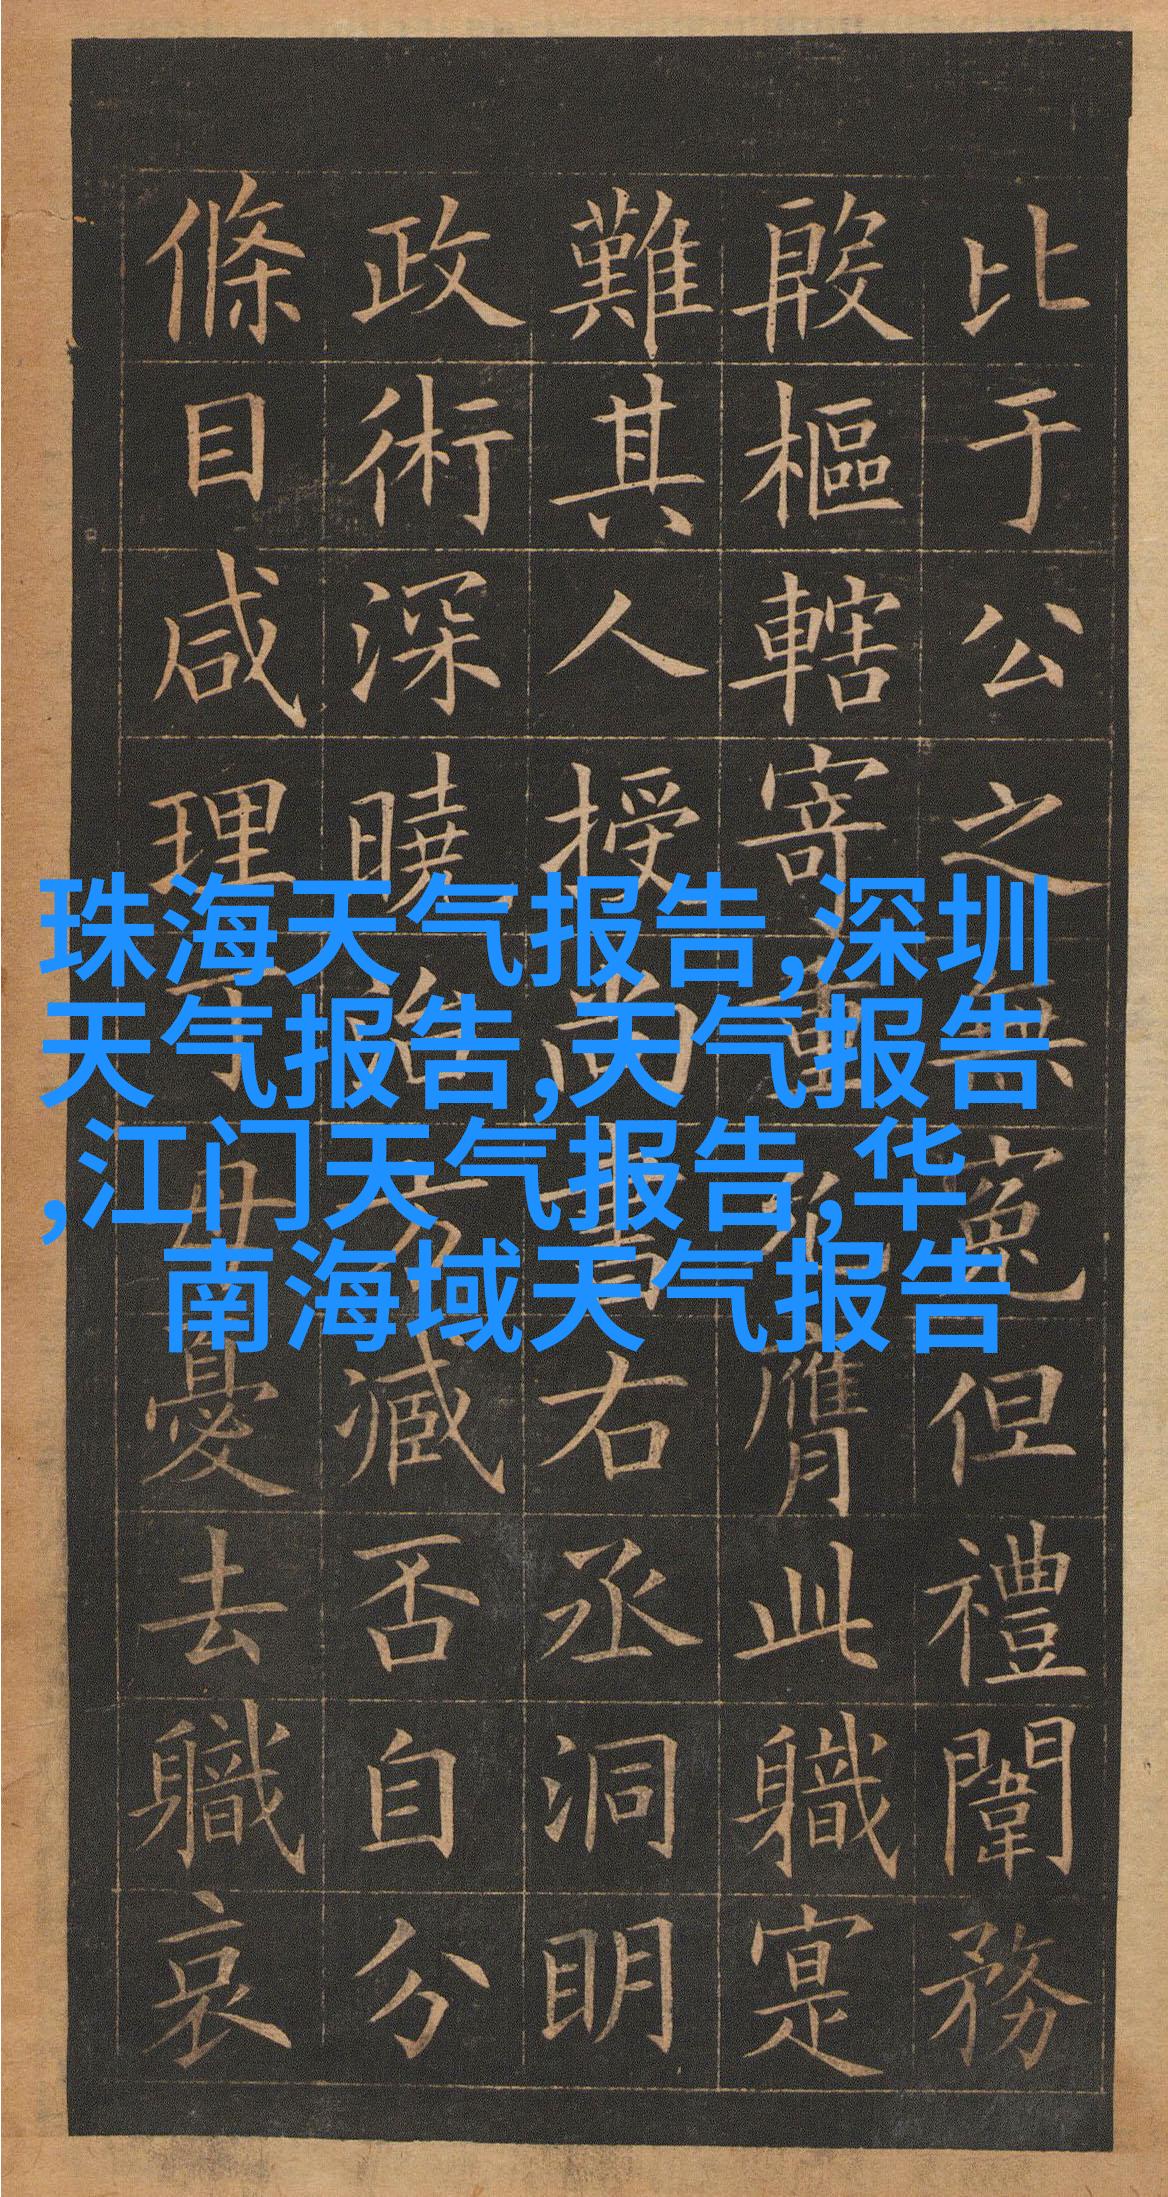 比于公之無寃但禮闈務
殷樞轄寄重膺此職寔
難其人授尚書右丞洞明
政術深曉治方臧否自分
條目咸理丁母憂去職哀
珠海天气报告,深圳
天气报告,天气报告
,江门天气报告,华
南海域天气报告